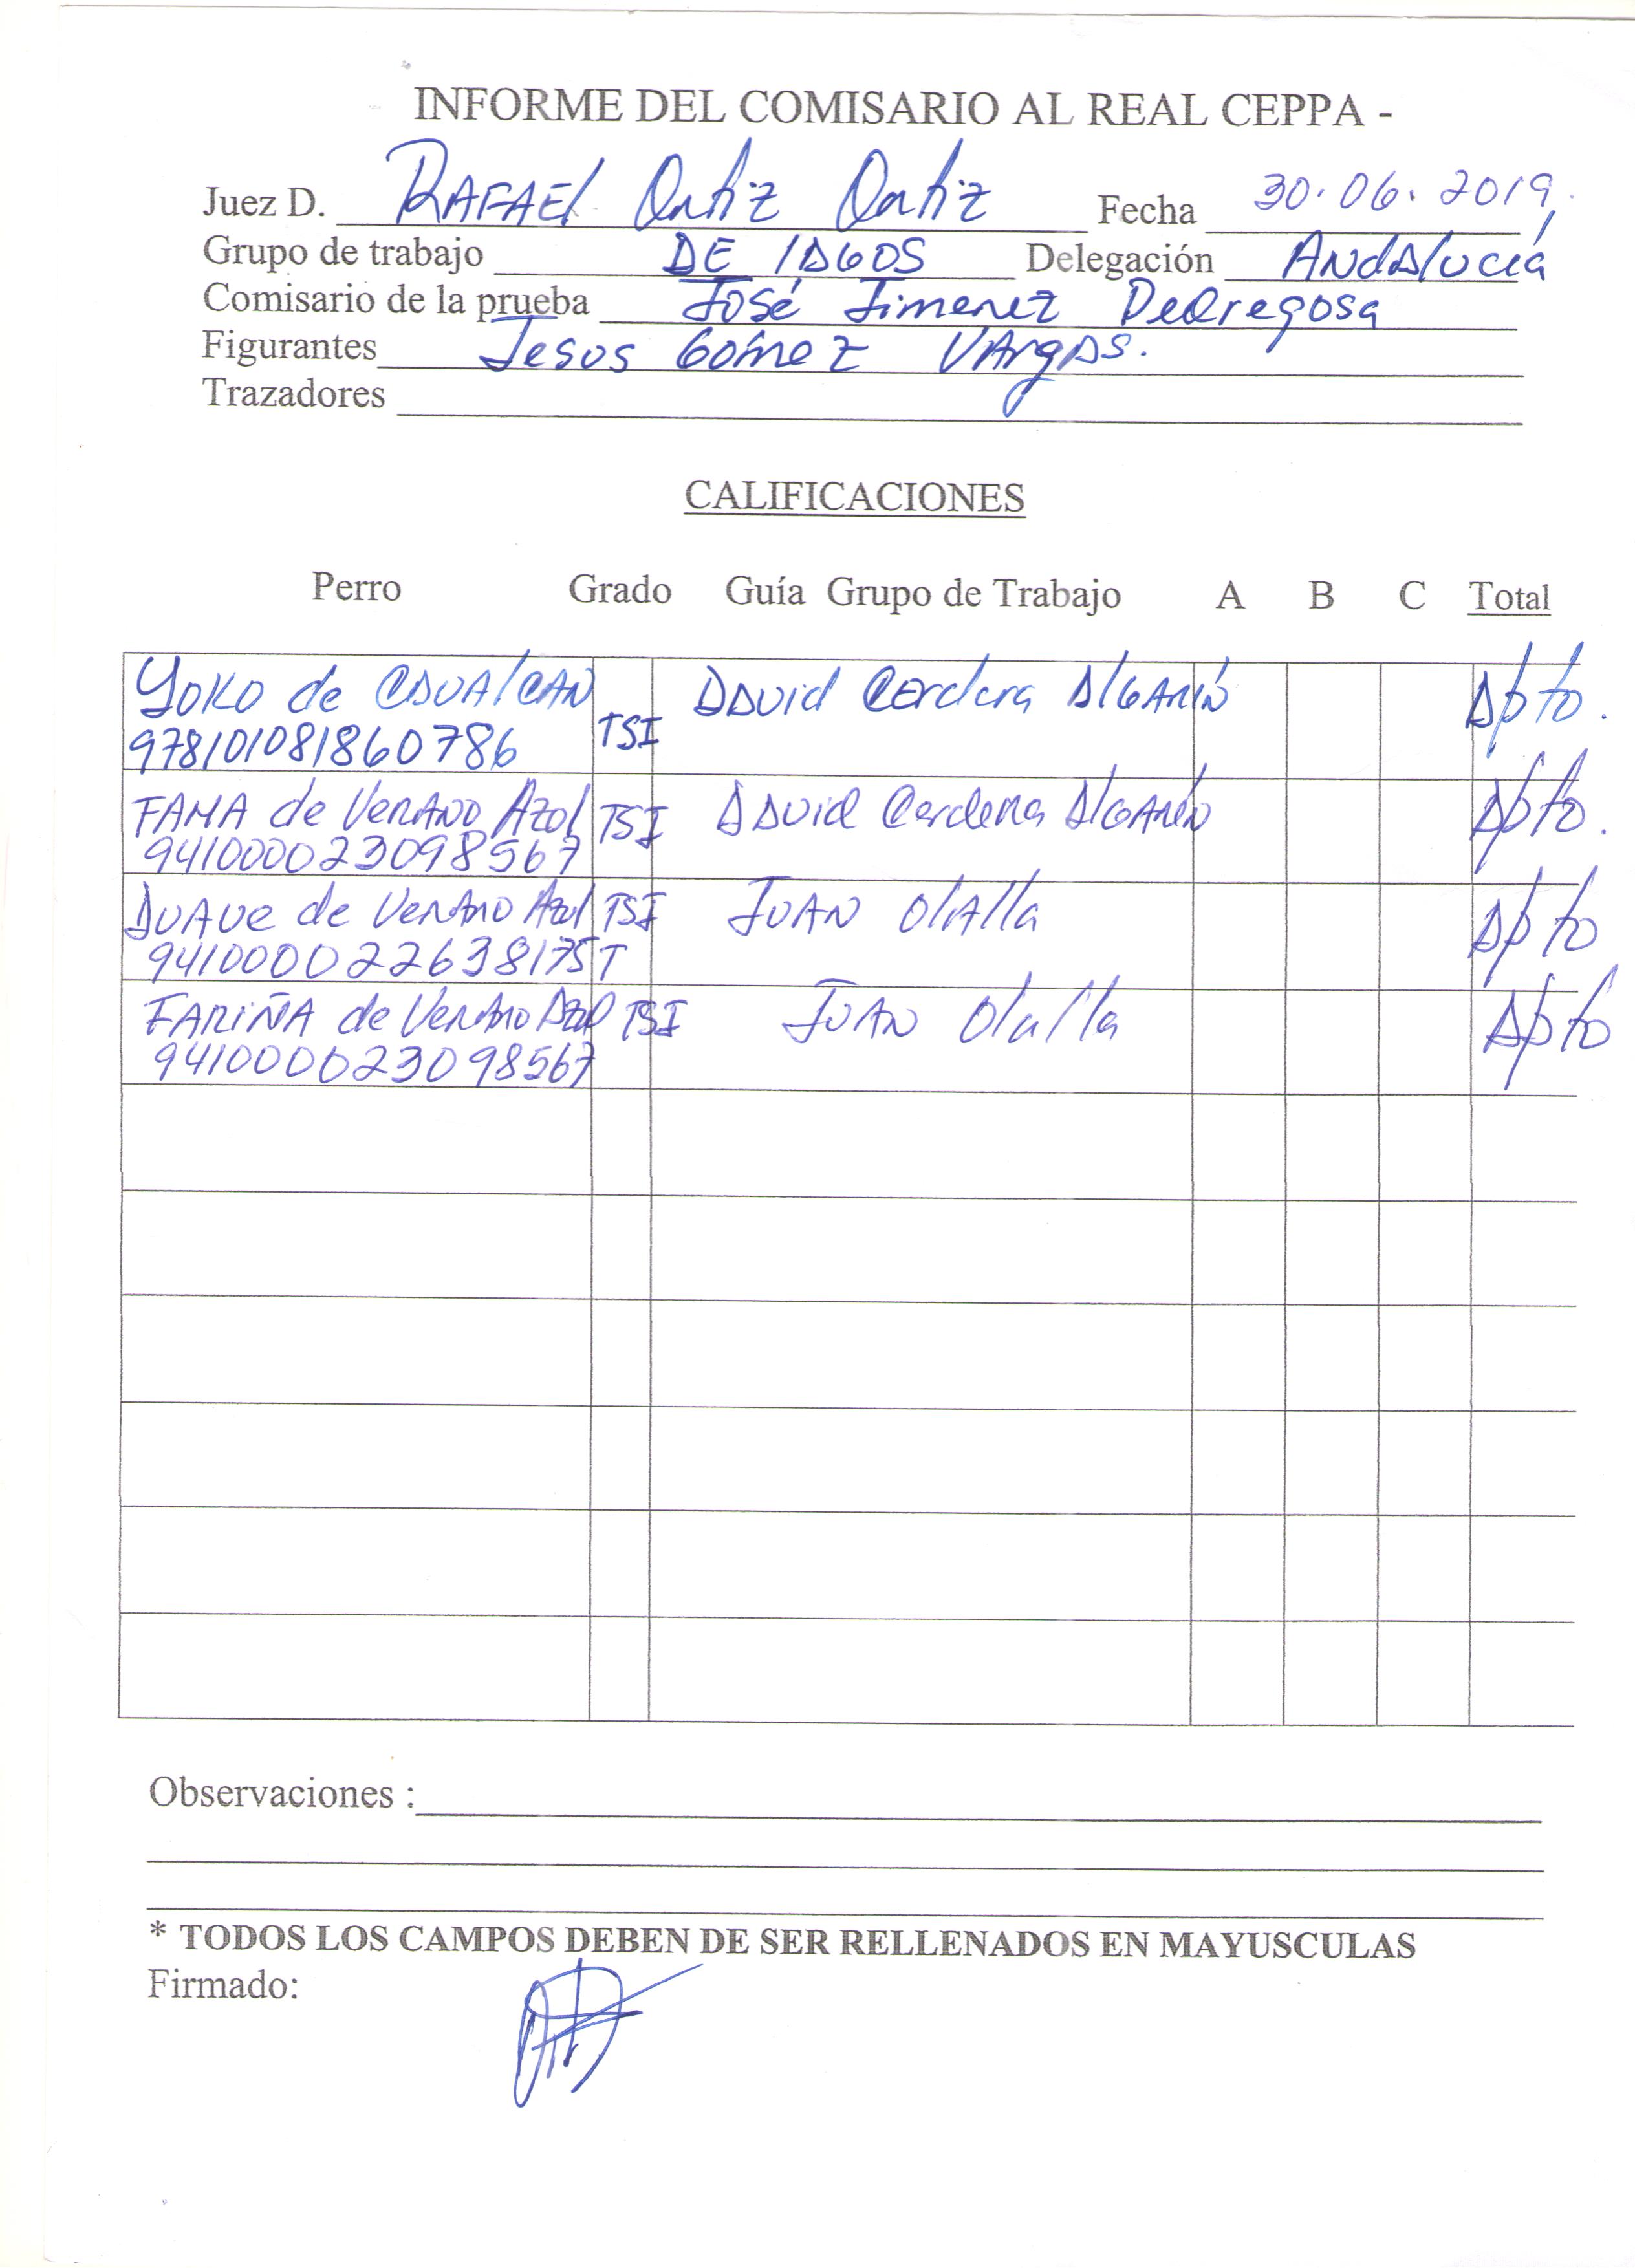 INFORME DEL COMISARIO AL REAL CEPPA -
Juez D. RAFAEL Ortiz Ortiz Fecha 30.06.2019,
Grupo de trabajo DE Delegación ANDALUCIA
Comisario de la prueba José Jimenez Pedregosa
Figurantes Jesus Gómez VArgAs.
Trazadores
CALIFICACIONES
Perro Grado Guía Grupo de Trabajo A B C Total
YOKO de CAVALCAN TSI DAvid Cerdera AlGARÍN Apto.
978101081860786
FAMA de VERANO Azul TSI DAvid Cerdera AlGARÍN Apto.
941000023098567
de VERANO Azul TSI JUAN OlAlla Apto
FARIÑA de VERANO Azul TSI JUAN Olalla Apto
941000023098567
Observaciones :
* TODOS LOS CAMPOS DEBEN DE SER RELLENADOS EN MAYUSCULAS
Firmado: